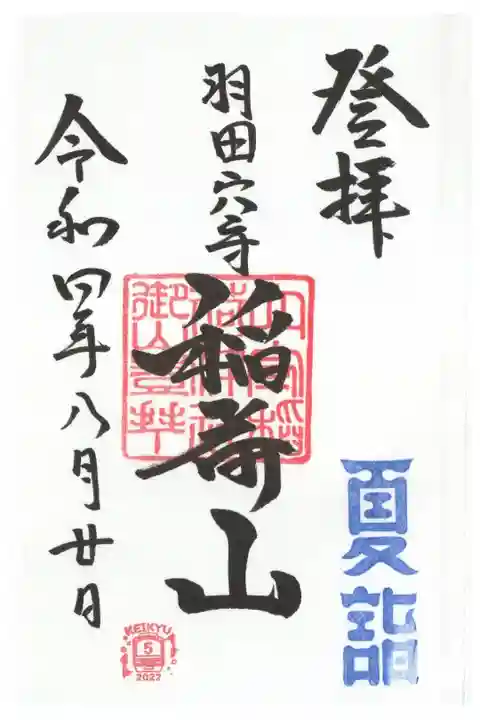 登拝
羽田穴守
稲荷山
令和四年八月廿日
夏詣
御山登拝
KEIKYU
5
2022